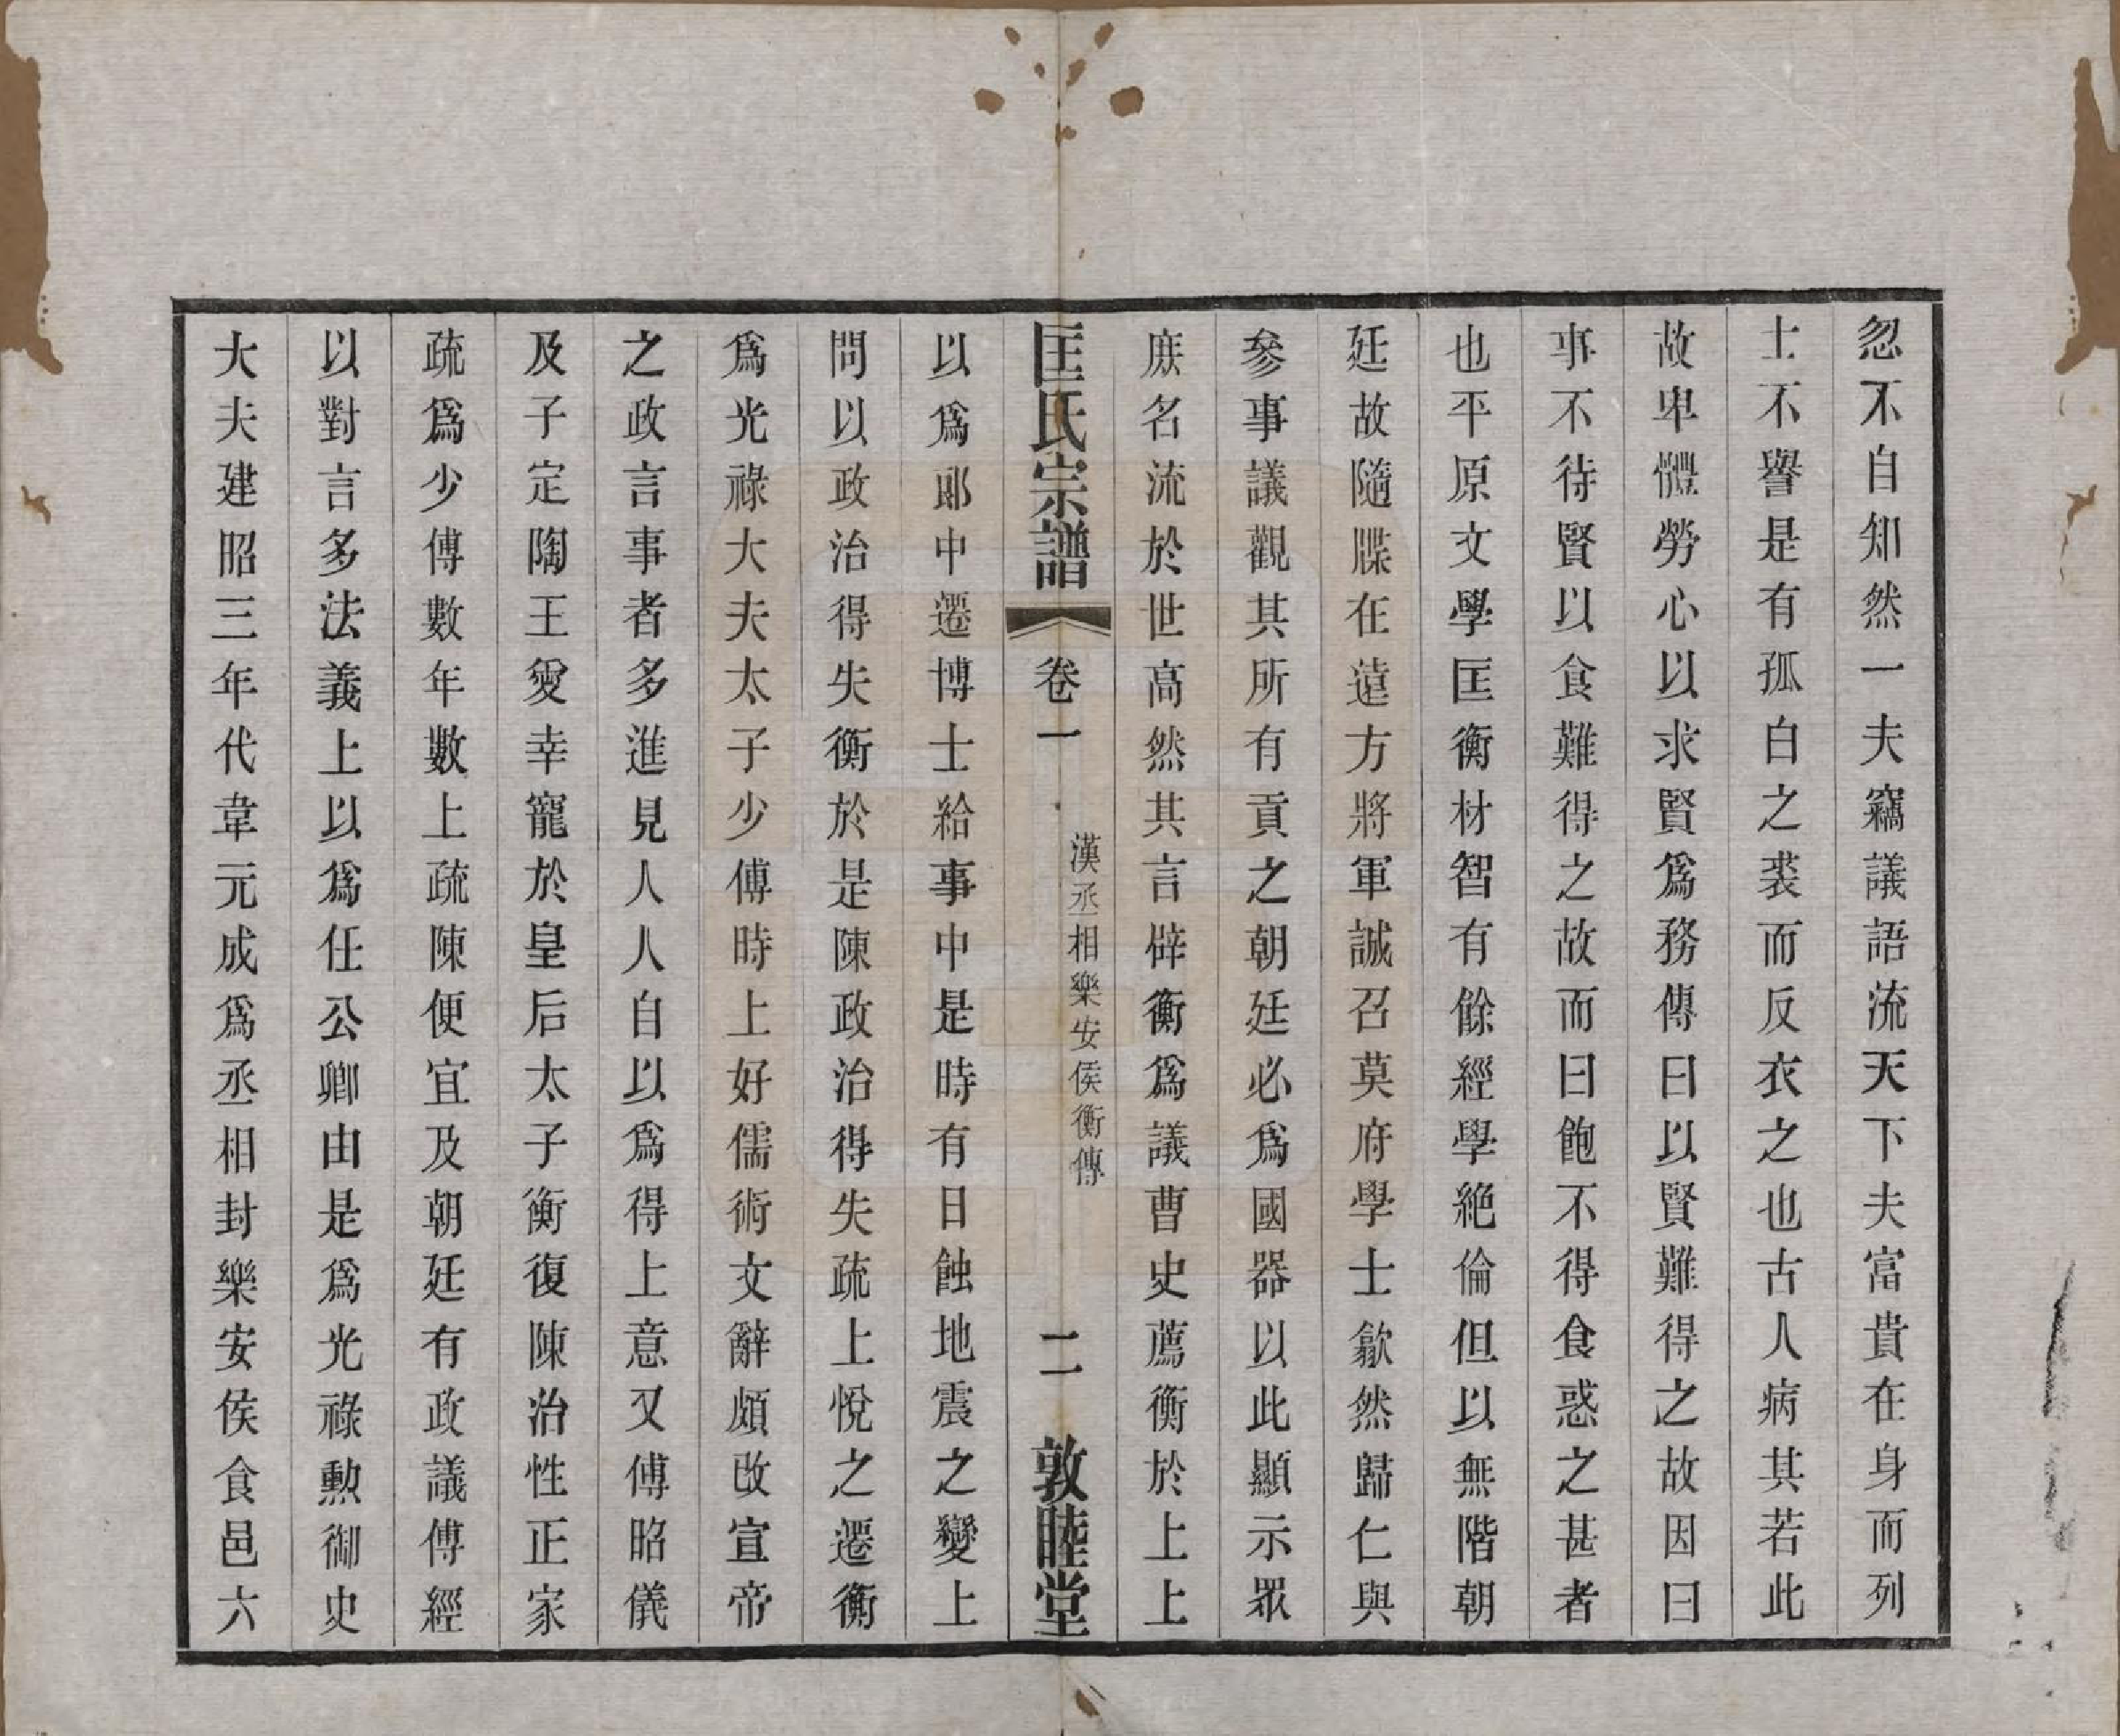 忽不自知然一夫竊議語流天下夫富貴在身而列
士不譽是有孤白之裘而反衣之也古人病其若此
故卑體勞心以求賢爲務傳曰以賢難得之故因曰
事不待賢以食難得之故而曰飽不得食惑之甚者
也平原文學匡衡材智有餘經學絶倫但以無階朝
廷故隨牒在遠方將軍誠召莫府學士歙然歸仁與
參事議觀其所有貢之朝廷必爲國器以此顯示眾
庶名流於世高然其言辟衡爲議曹史薦衡於上上
匡氏宗譜
卷一
漢丞相樂安侯衡傳
二
敦睦堂
以爲郞中遷博士給事中是時有日蝕地震之變上
問以政治得失衡於是陳政治得失疏上悅之遷衡
爲光祿大夫太子少傅時上好儒術文辭頗改宣帝
之政言事者多進見人人自以爲得上意又傅昭儀
及子定陶王愛幸寵於皇后太子衡復陳治性正家
疏爲少傅數年數上疏陳便宜及朝廷有政議傅經
以對言多法義上以爲任公卿由是爲光祿勲御史
大夫建昭三年代韋元成爲丞相封樂安侯食邑六